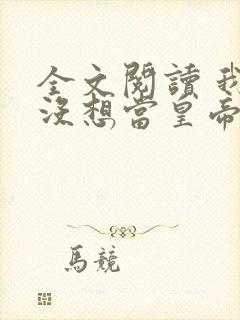 全文閱讀 我
沒想當皇帝
馬競